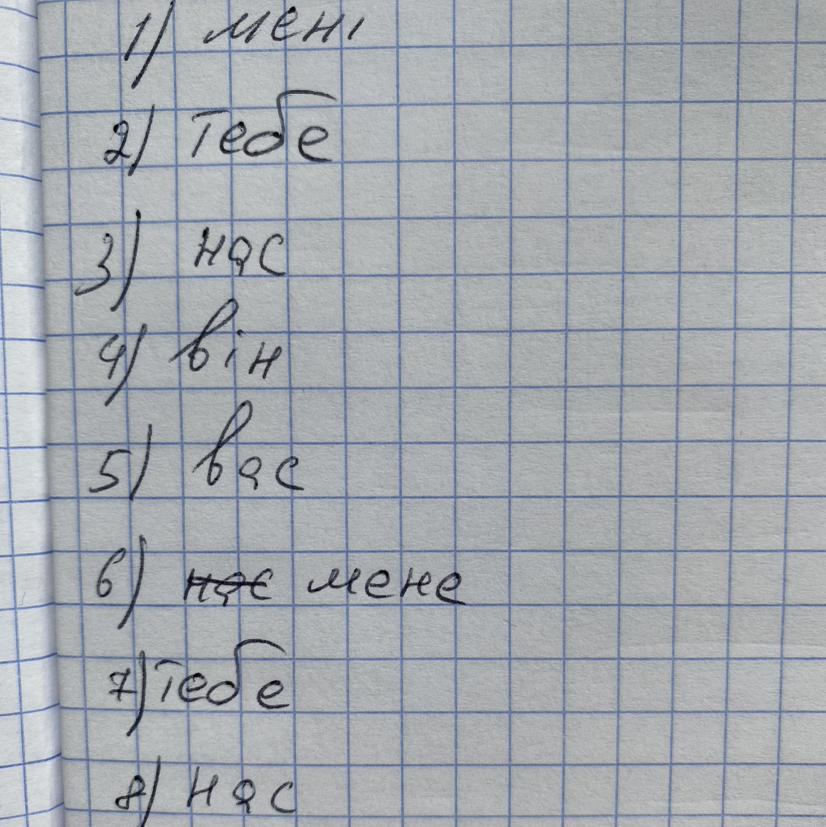 1) мені
2) тебе
3) нас
4) він
5) вас
6) нас мене
7) тебе
8) нас